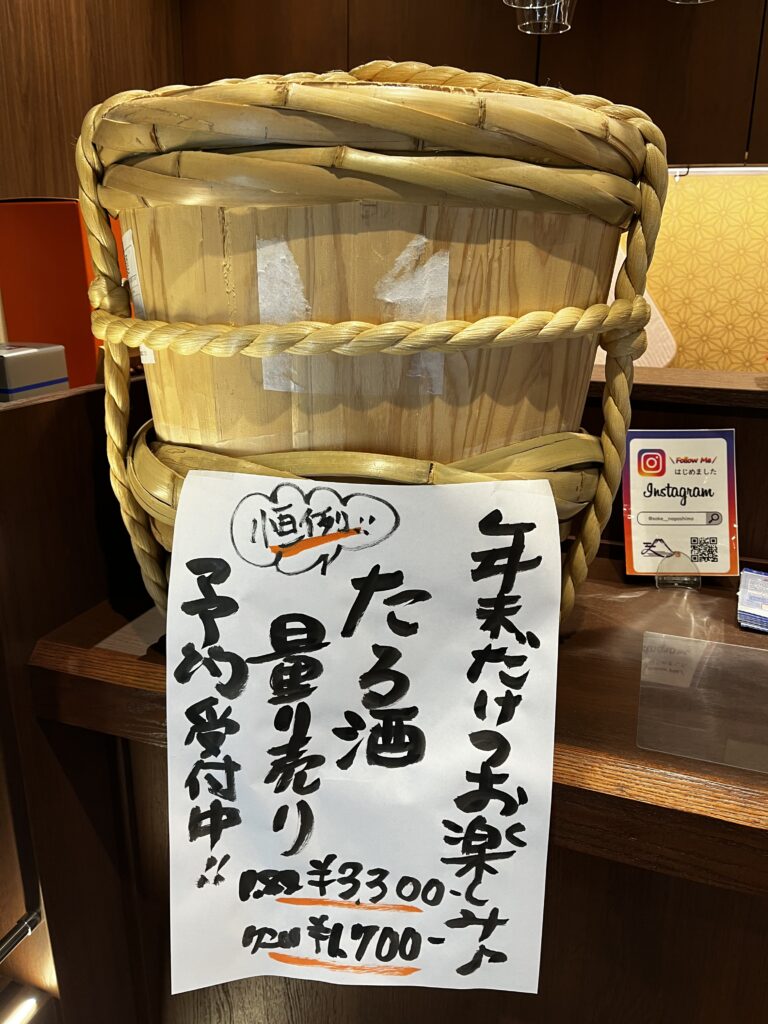 恒例!!
年末だけのお楽しみ
たる酒
量り売り
予約受付中!!
¥3,300-
720ml ¥1,700-
\Follow Me/
はじめました
Instagram